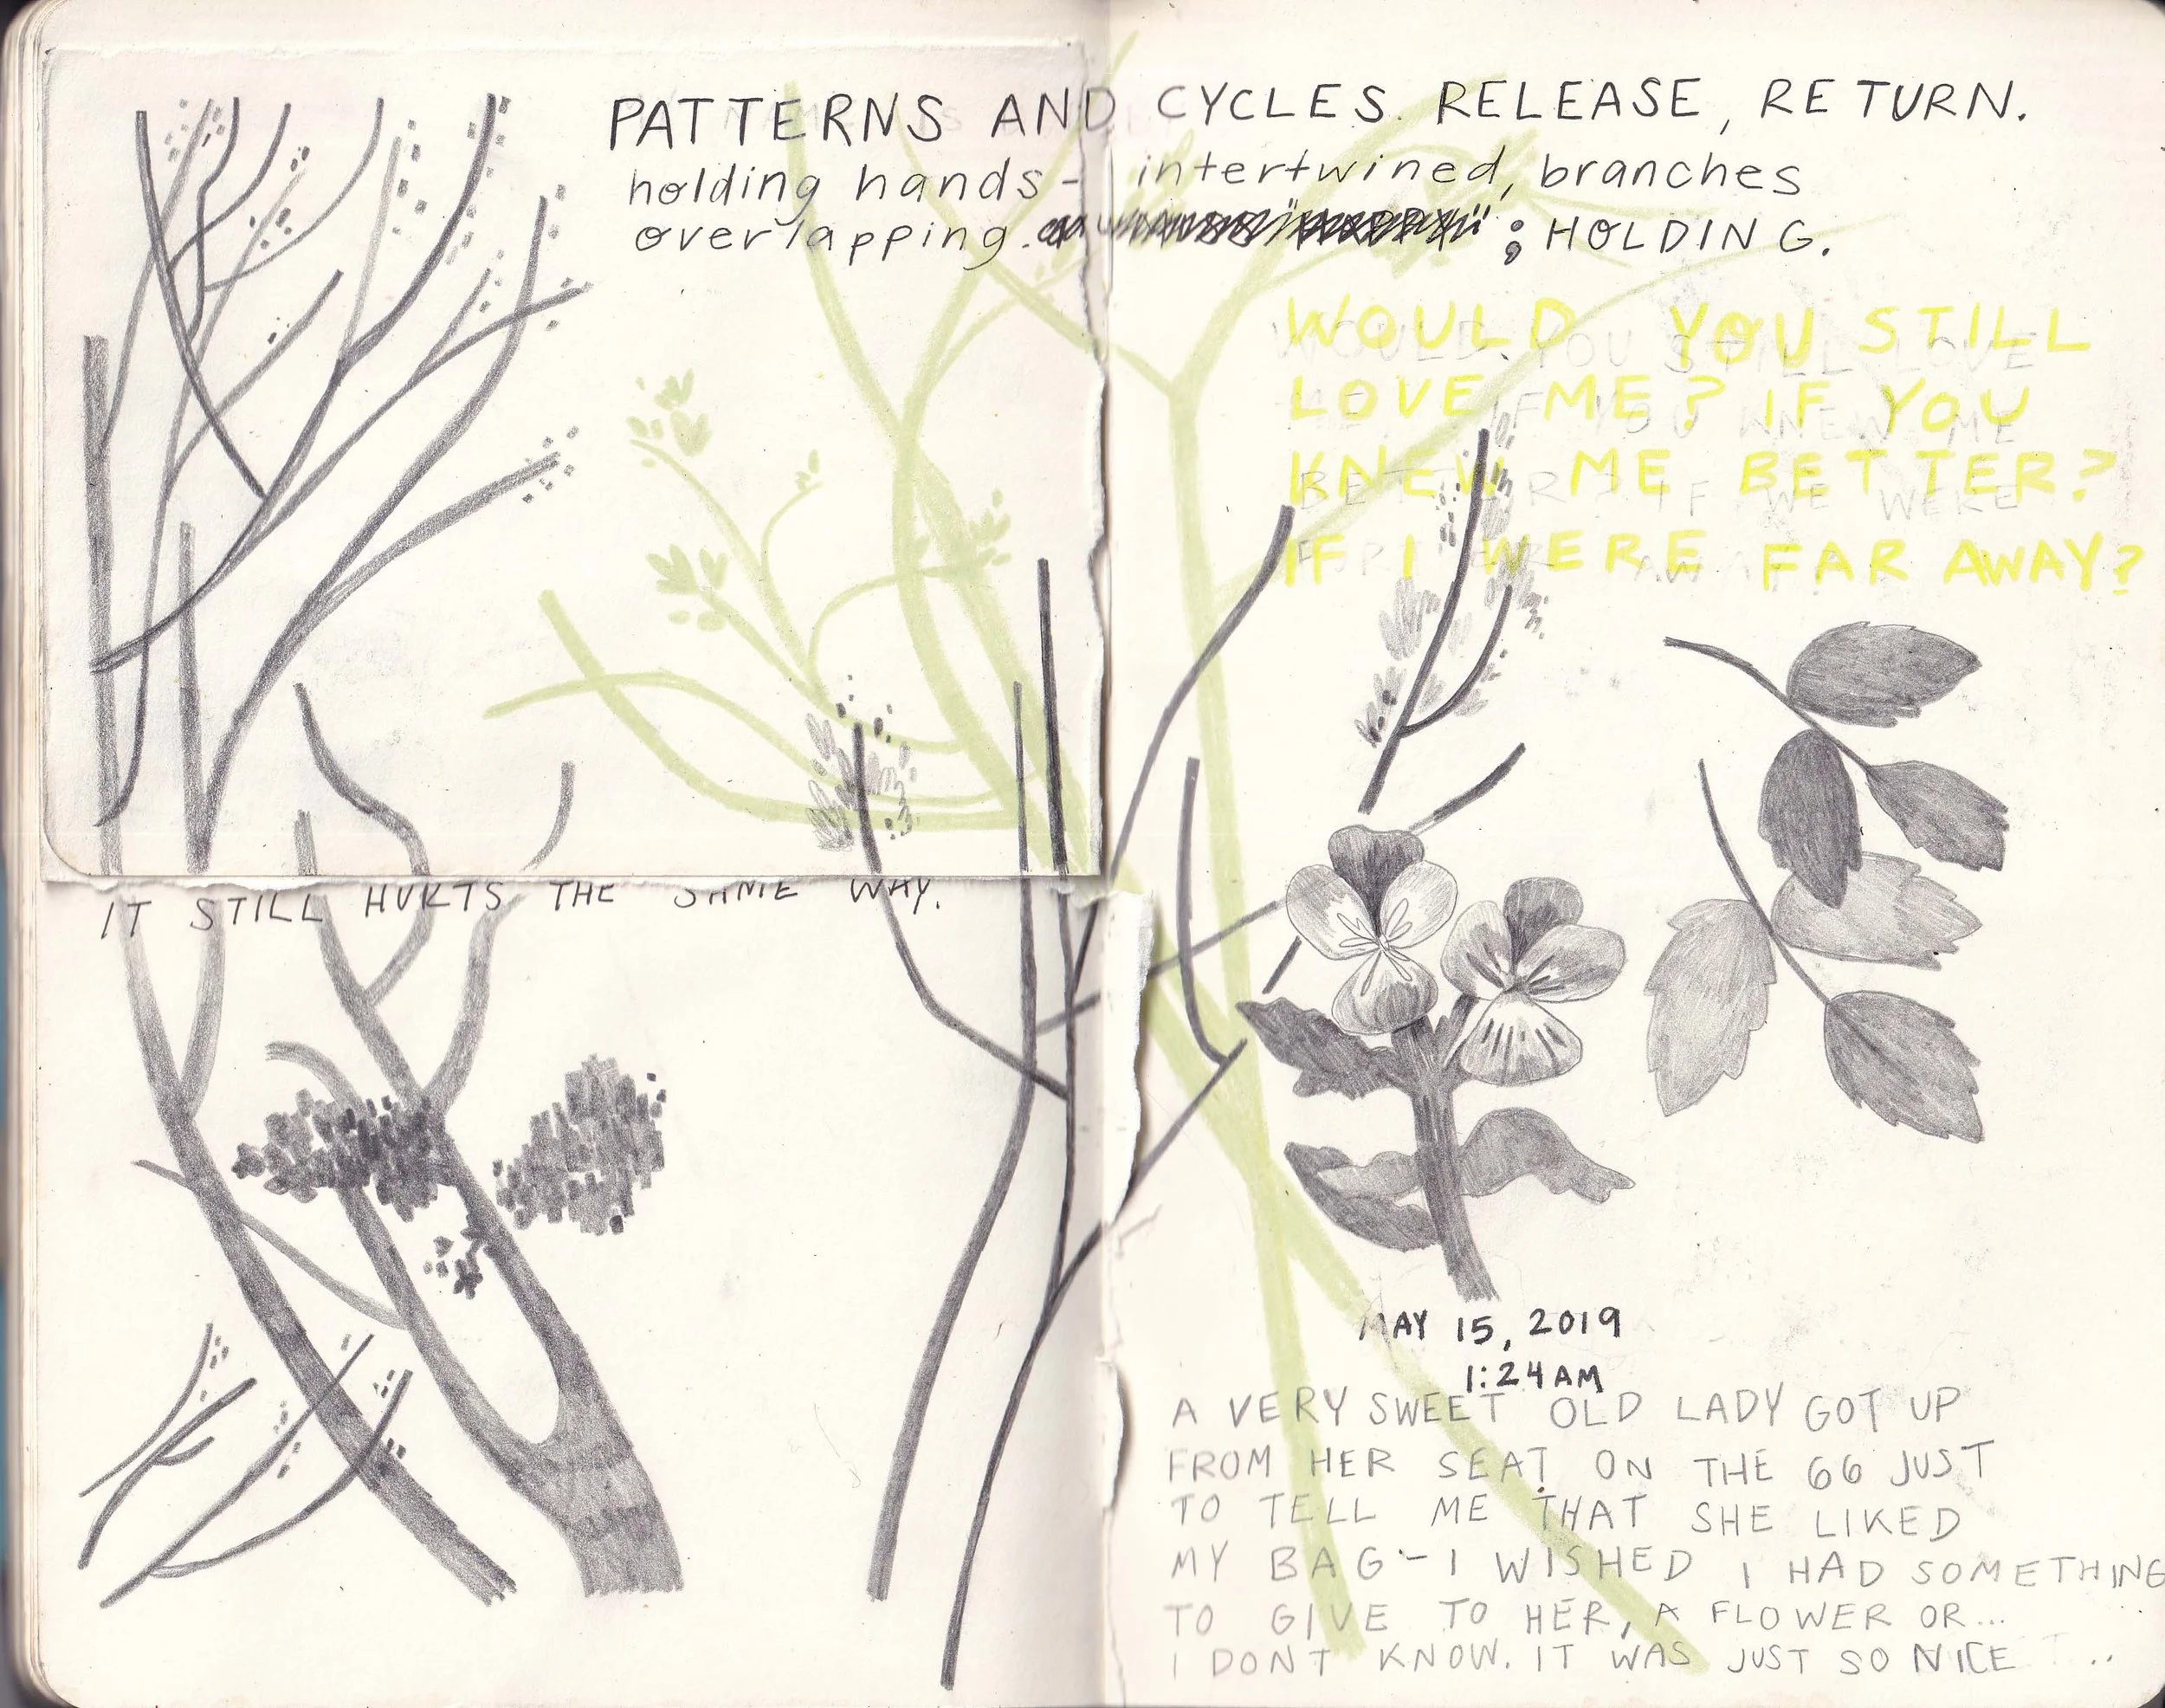 PATTERNS AND CYCLES. RELEASE, RETURN.
holding hands - intertwined, branches
overlapping. ; HOLDING.
WOULD YOU STILL
LOVE ME? IF YOU
KNEW ME BETTER?
IF I WERE FAR AWAY?
WOULD YOU STILL LOVE
ME? IF YOU KNEW ME
BETTER? IF WE WERE
IT STILL HURTS THE SAME WAY.
MAY 15, 2019
1:24AM
A VERY SWEET OLD LADY GOT UP
FROM HER SEAT ON THE 66 JUST
TO TELL ME THAT SHE LIKED
MY BAG - I WISHED I HAD SOMETHING
TO GIVE TO HER, A FLOWER OR...
I DONT KNOW. IT WAS JUST SO NICE ...